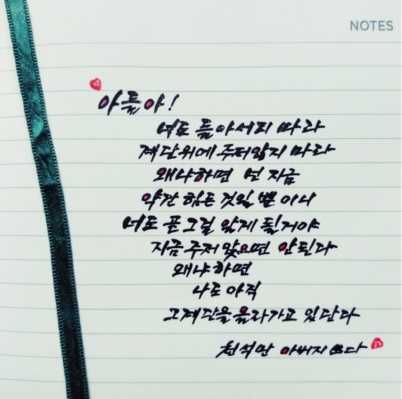 NOTES
아들아!
너도 돌아서지 마라
계단위에 주저앉지 마라
왜냐하면 넌 지금
약간 힘든 것일 뿐이니
너도 곧 그걸 알게 될거야
지금 주저 앉으면 안된다
왜냐하면
나도 아직
그계단을 올라가고 있단다
천석만 아버지 쓰다